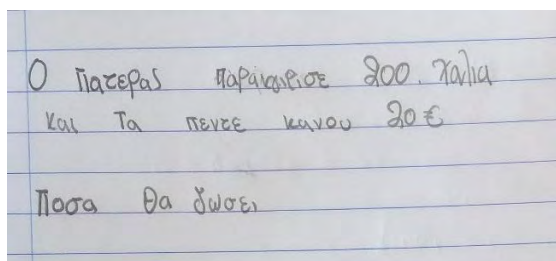 Ο πατερας παραγγιρισε 200. χαλια
και Τα πεντε κανου 20 €
Ποσα θα δωσει